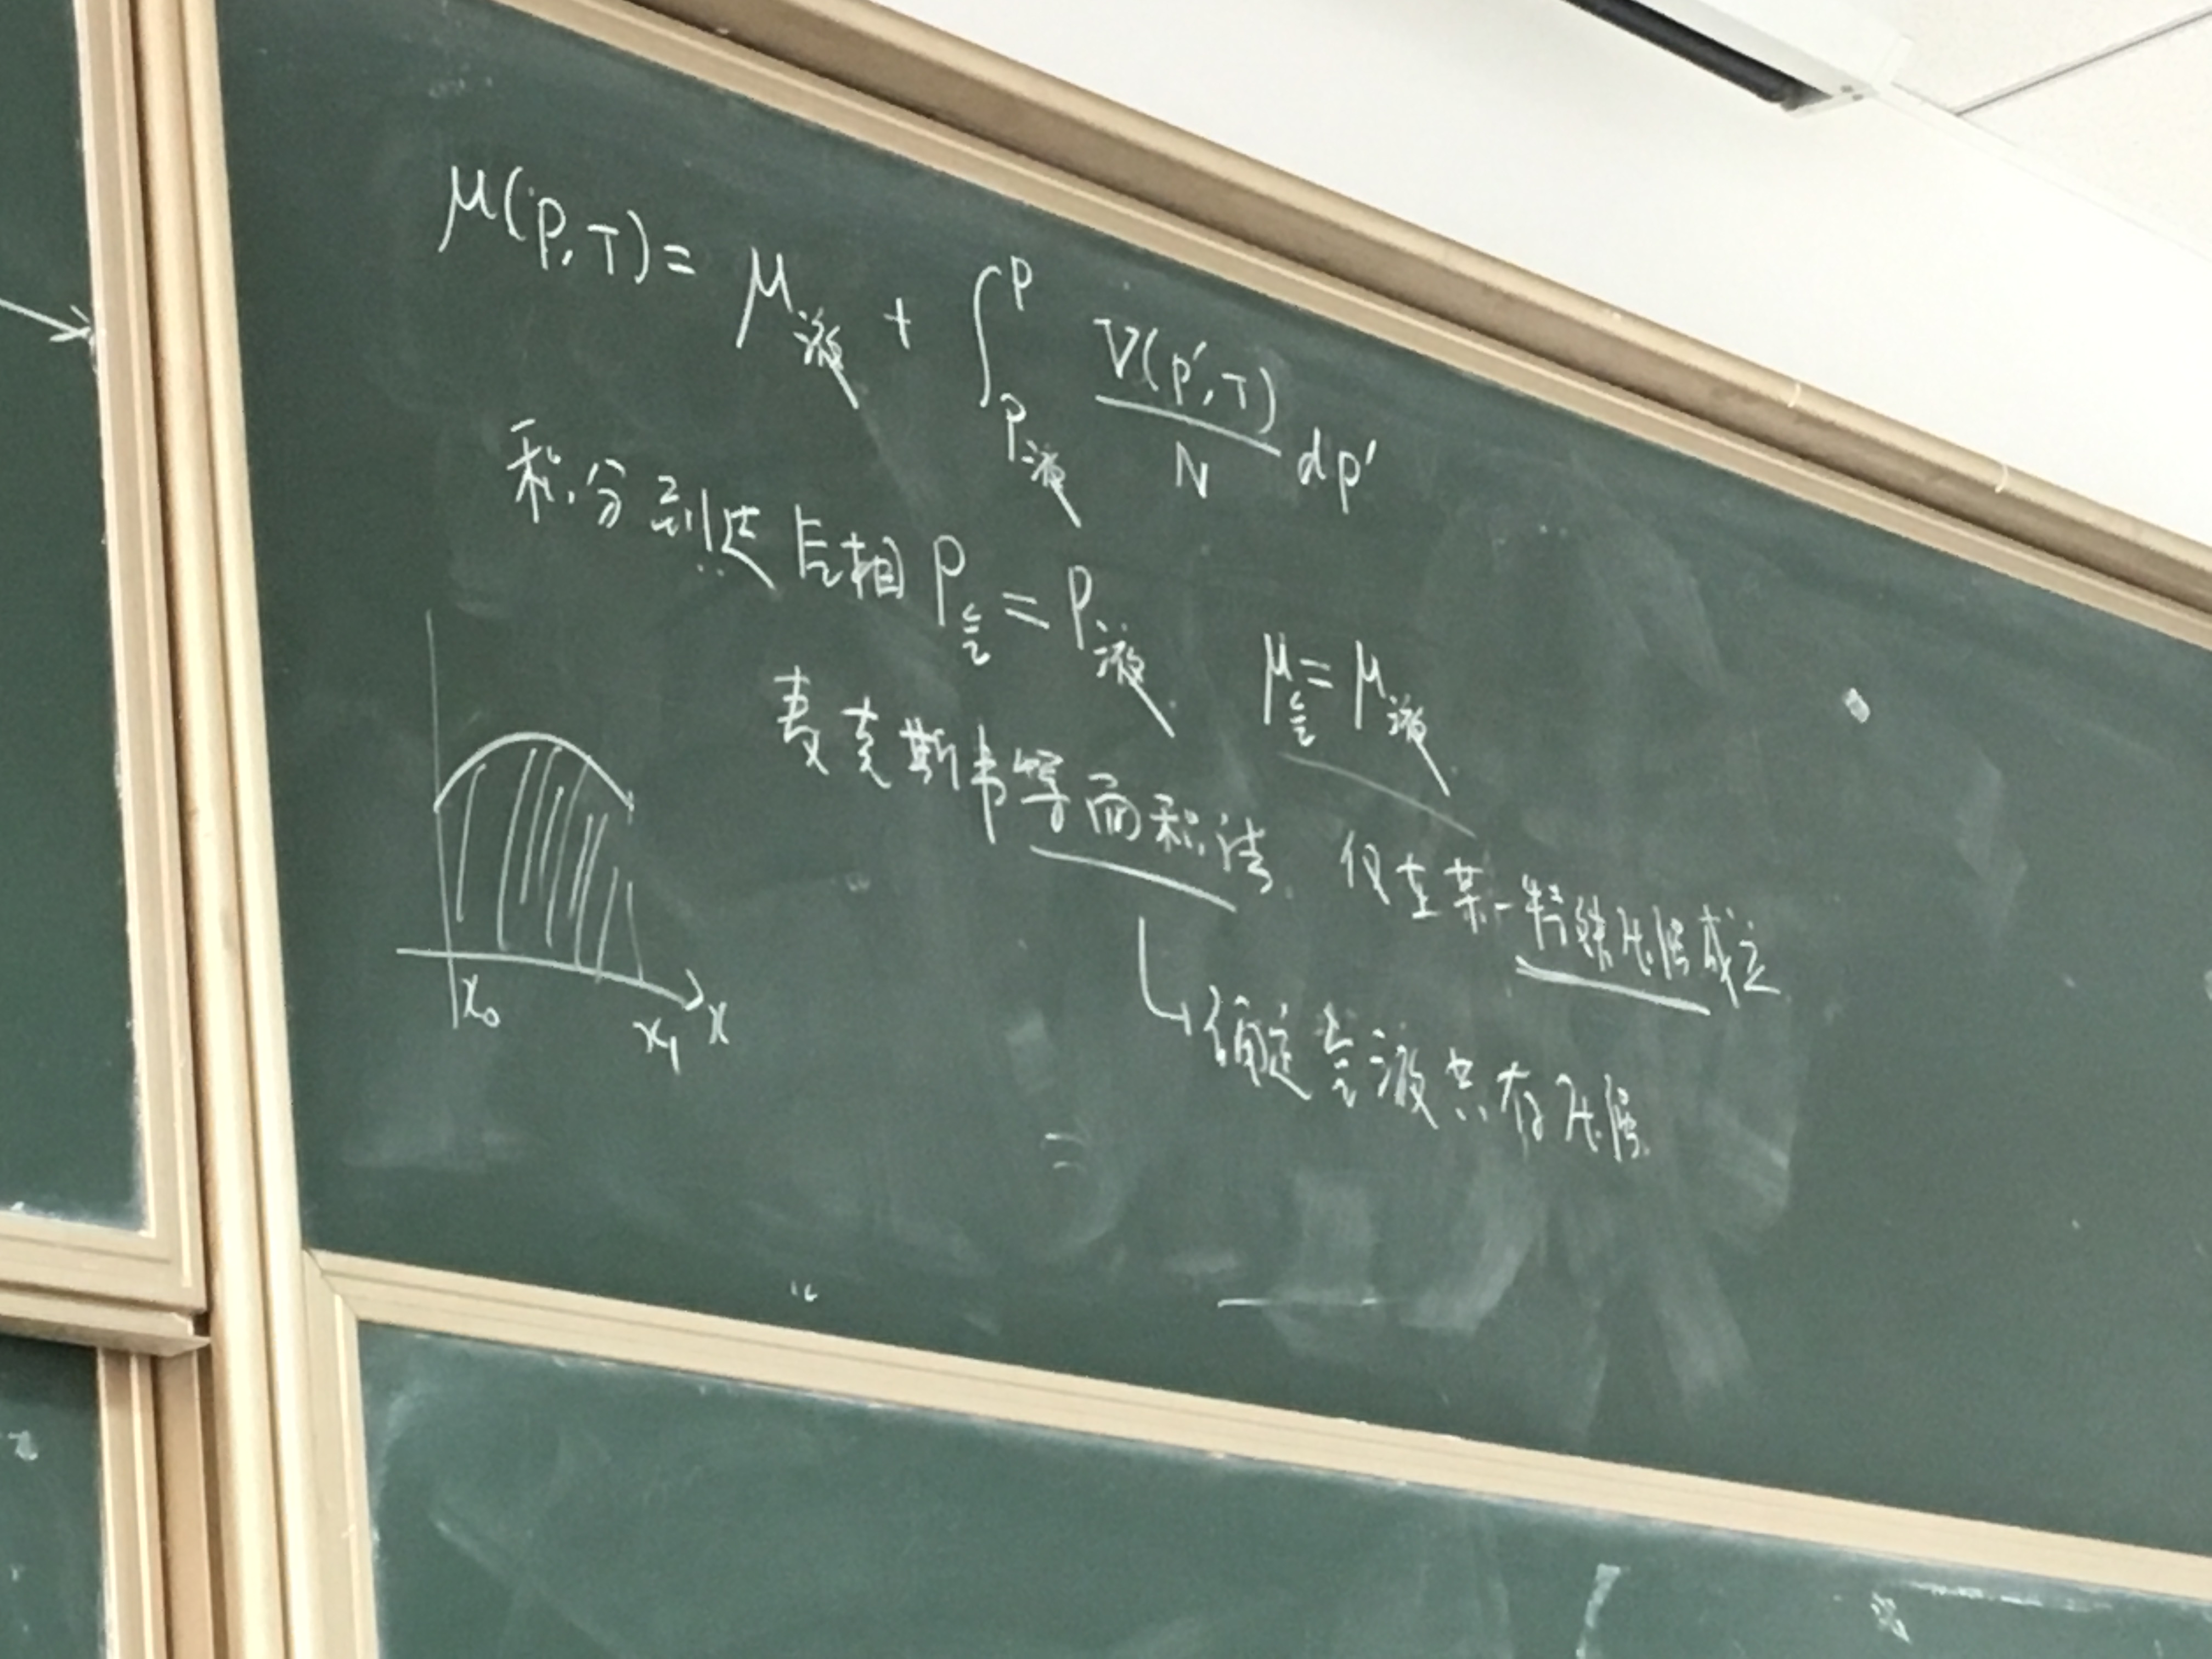 μ(p,T) = μ液 + ∫_{p液}^{p} V(p',T)/N dp'
积分到达气相 p气 = p液 μ气 = μ液
麦克斯韦等面积法 仅在某一特殊压强成立
↳确定气液共存压强
x₀ x₁ x